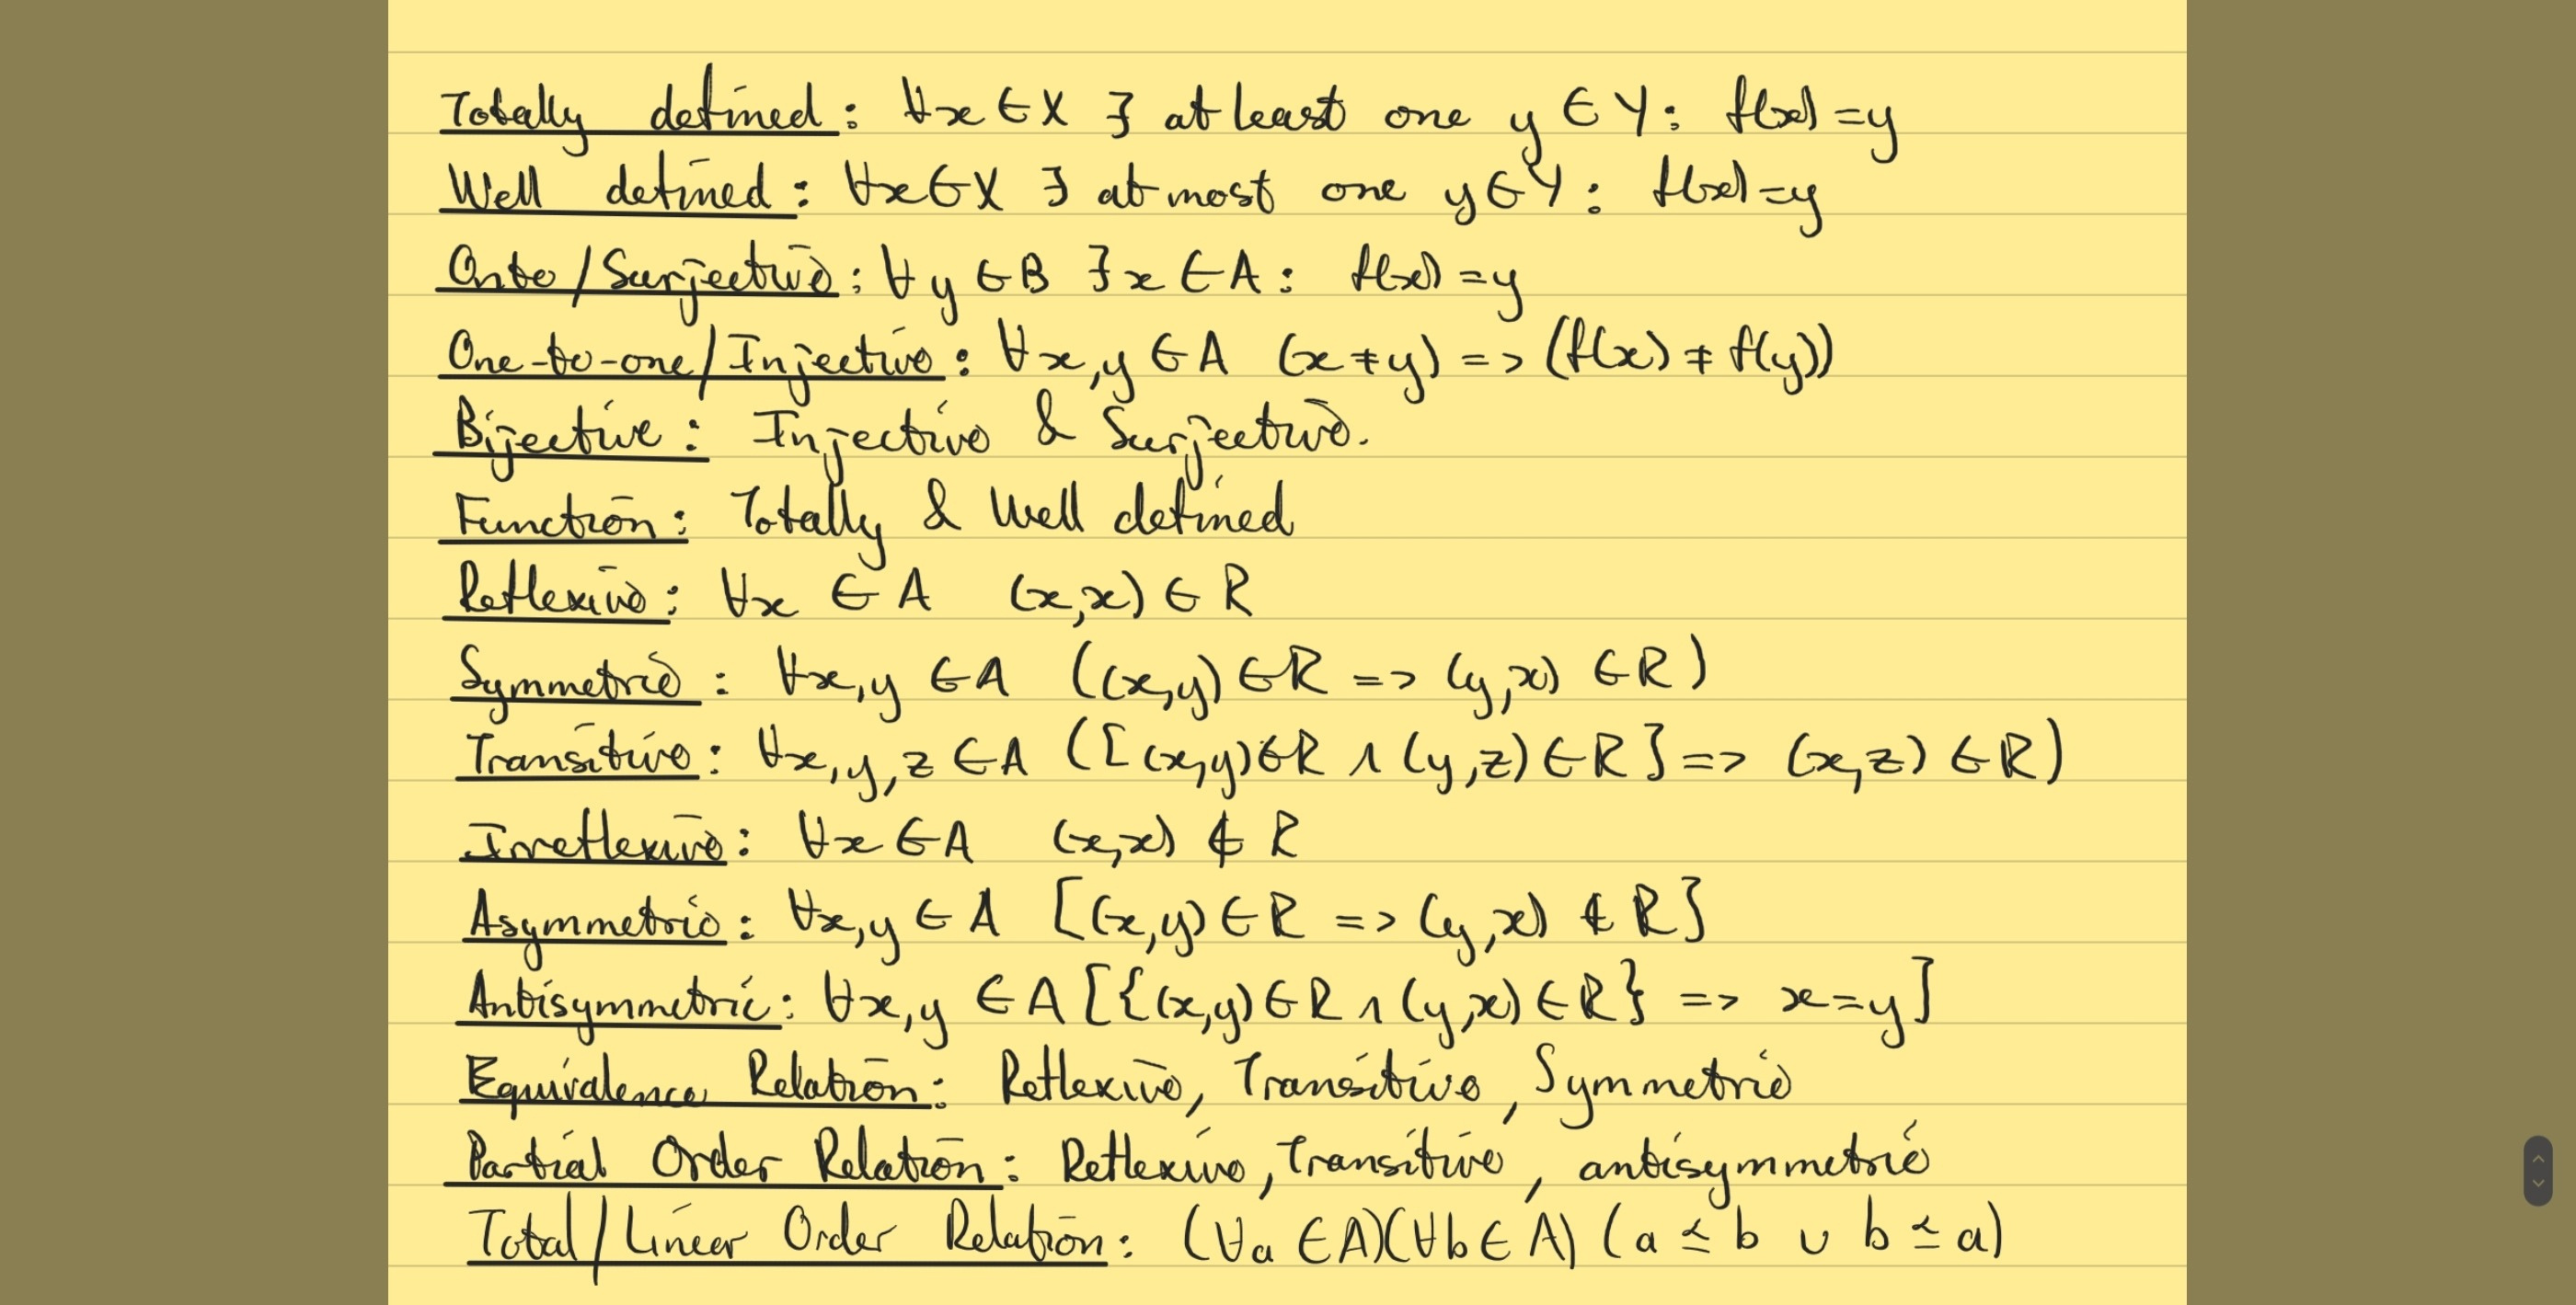 Totally defined: ∀x ∈ X ∃ at least one y ∈ Y: f(x) = y
Well defined: ∀x ∈ X ∃ at most one y ∈ Y: f(x) = y
Onto/Surjective: ∀y ∈ B ∃x ∈ A: f(x) = y
One-to-one/Injective: ∀x,y ∈ A (x ≠ y) => (f(x) ≠ f(y))
Bijective: Injective & Surjective.
Function: Totally & Well defined
Reflexive: ∀x ∈ A (x,x) ∈ R
Symmetric: ∀x,y ∈ A ((x,y) ∈ R => (y,x) ∈ R)
Transitive: ∀x,y,z ∈ A ([(x,y) ∈ R ∧ (y,z) ∈ R] => (x,z) ∈ R)
Irreflexive: ∀x ∈ A (x,x) ∉ R
Asymmetric: ∀x,y ∈ A [(x,y) ∈ R => (y,x) ∉ R]
Antisymmetric: ∀x,y ∈ A [{(x,y) ∈ R ∧ (y,x) ∈ R} => x=y]
Equivalence Relation: Reflexive, Transitive, Symmetric
Partial Order Relation: Reflexive, Transitive, antisymmetric
Total/Linear Order Relation: (∀a ∈ A)(∀b ∈ A) (a ≼ b ∪ b ≼ a)